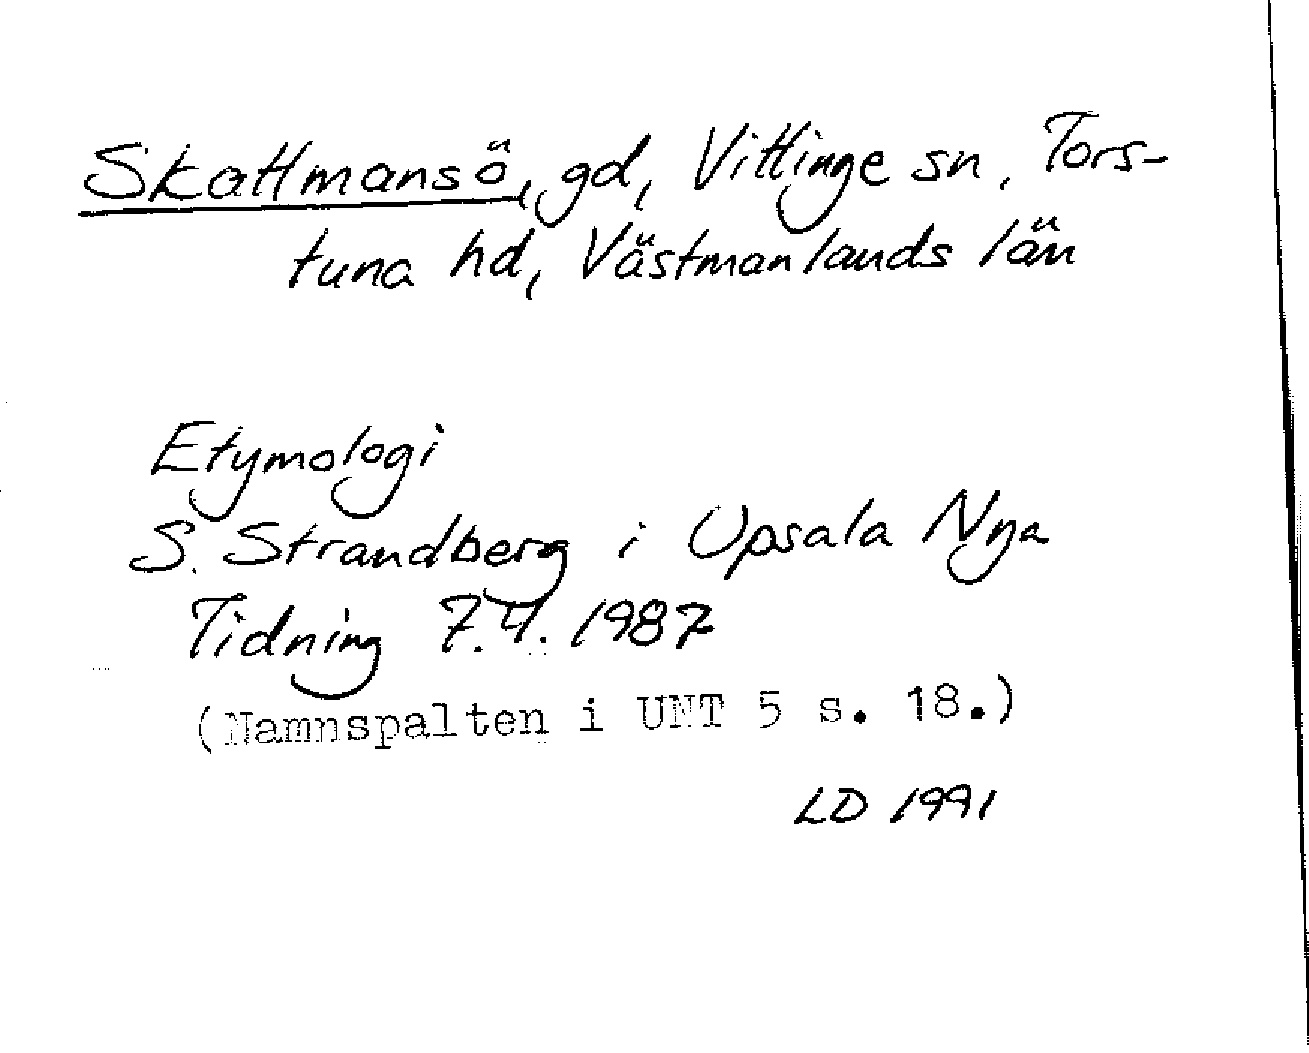 Skattmansö, gd, Vittinge sn, Tors-
tuna hd, Västmanlands län
Etymologi
S. Strandberg i Upsala Nya
Tidning 7.4. 1987
(Namnspalten i UNT 5 s. 18.)
LD 1991